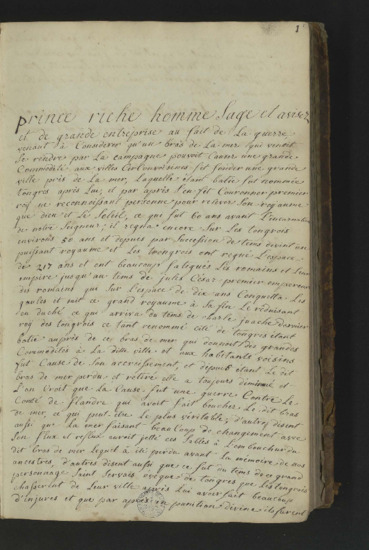 1
prince riche homme Sage et avisez
et de grande entreprise au fait de La guerre
venant à Considerer qu'un bras de La mer qui venoit
Se rendre par La Campagne pouvoit Causer une grande
Commodité aux villes fit fonder une grande
ville près de La mer, Laquelle étant batie fut nommée
tongris après Lui; et par après S'en fit Couronner premier
roy ne reconnoissant personne pour relever Son royaume
que dieu et Le Soleil, ce qui fut 60 ans avant
de notre Seigneur; il regna encore Sur Les tongrois
environs 50 ans et depuis par Succession de tems devint une
puissant royaume et Les toongrois ont regné L'espace
de 217 ans et ont beaucoup fatigués Les romains et Leur
empire jusqu'au tems de jules César premier empereur
des romains qui Sur L'espace de dix ans Conquetta Les
gaules et mit ce grand royaume à Sa fin Le réduissant
en duché ce qui arriva du tems de dernier
roy des tongrois ce tant renommé cité de tongres étant
batie auprès de ce bras de mer qui donnoit des grandes
Commodités à La dite ville et aux habitants voisins
fut Cause de Son accroissement, et depuis étant Le dit
bras de mer perdu et retiré elle a toujours diminué et
L'on Croit que La Cause fut une guerre Contre Le
Comté de flandre qui avoit fait boucher Le dit bras
de mer, et qui peut être Le plus véritable; d'autres disent
aussi que La mer faisant beaucoup de changement avec
Son flux et reflux auroit jetté Ses Sables à L'embouchure du
dit bras de mer Lequel à été perdu avant La mémoire de nos
ancestres, d'autres disent aussi que ce fut du tems de ce grand
personnage Saint Servais evêque de tongres que Les tongrois
chasserent de Leur ville après Lui avoir fait beaucoup
d'injures et que par après en punition divine ils furent